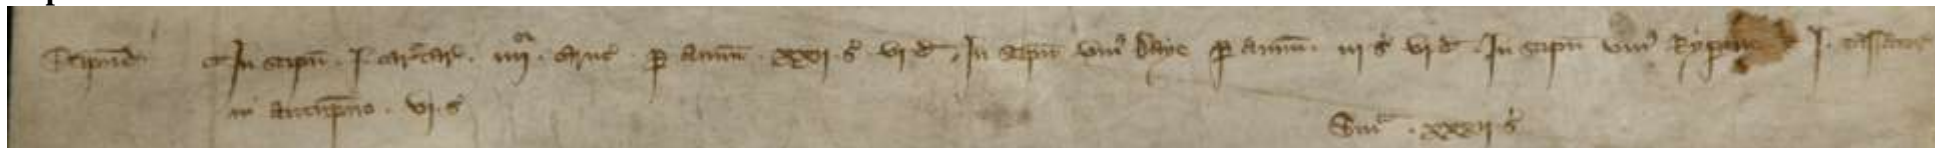 Stipend In stipend . j carectar . iiijor caruc . p annu . xxij . s . vj d . In stipend uni daye p annu . iij s vj d . In stipend uni Rypereue j . tassator
in autupno . vj . s Sma . xxxij . s